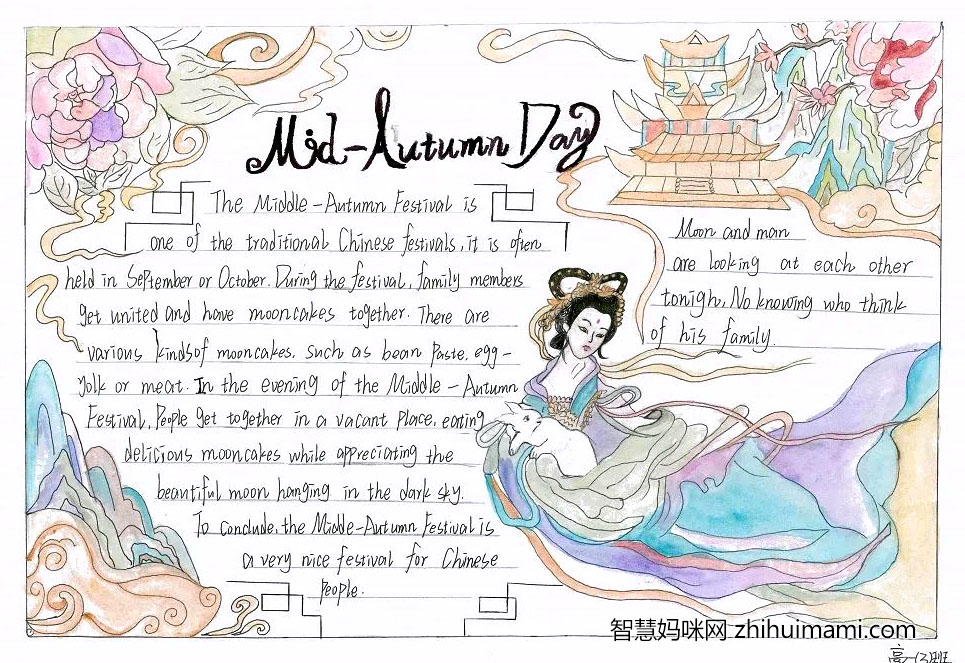 Mid-Autumn Day
The Middle-Autumn Festival is
one of the traditional Chinese festivals, it is often
held in September or October. During the festival, family members
get united and have mooncakes together. There are
various kinds of mooncakes. such as bean paste, egg-
yolk or meat. In the evening of the Middle-Autumn
Festival, People get together in a vacant place, eating
delicious mooncakes while appreciating the
beautiful moon hanging in the dark sky.
To conclude, the Middle-Autumn Festival is
a very nice festival for Chinese
People.
Moon and man
are looking at each other
tonigh, No knowing who think
of his family.
智慧妈咪网 zhihuimami.com